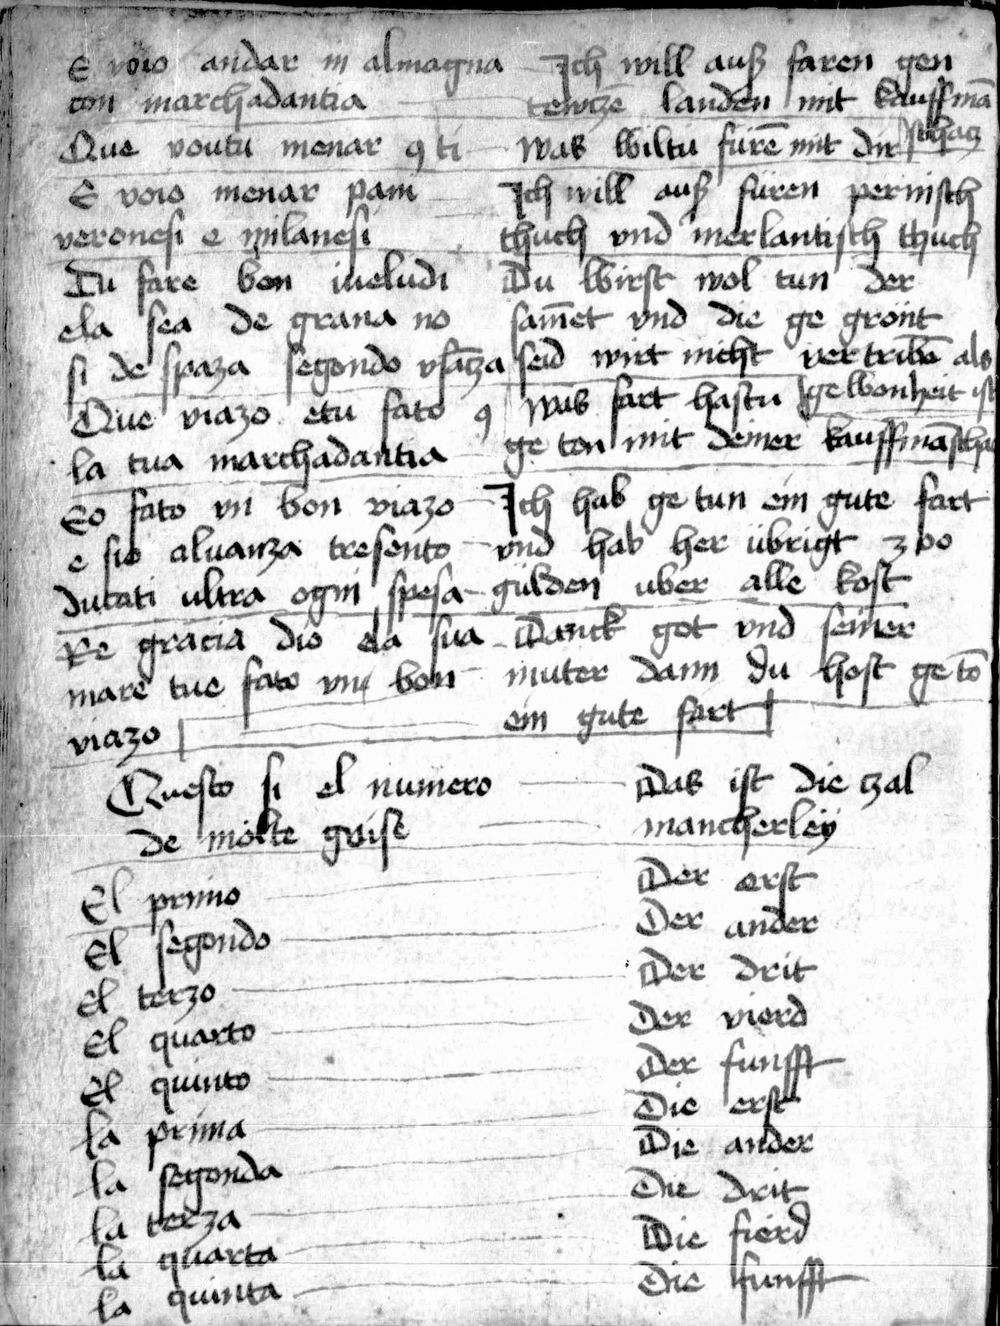 E voio andar in almagna Ich will auß faren gen
con marchadantia tewtzē landen mit kauffmā
Que voutu menar ꝯ ti Was wiltu fürē mit dir schatz
E voio menar pani Ich will auß füren pernisch
veronesi e milanesi thuch vnd merlantisch thuch
Du fare ben iueludi Du wirst wol tun der
ela sea de grana no sam̄et vnd die ge gront
si de spaza segondo vsāza seid wirt nicht vertribē als
Que viazo etu fato ꝯ Was fart hastu gewonheit ist
la tua marchadantia ge ton mit deiner kauffmāscha
Eo fato vn bon viazo Ich hab ge tun ein gute fart
e sio aluanza tresento vnd hab her übrigt 300
ducati ultra ogni spesa gulden uber alle kost
Re gracia dio ela sua Danck got vnd seiner
mare tue fato vn bon muter dann du host ge tō
viazo ein gute fart
Questo si el numero Das ist die tzal
de molte guise mancherley
El primo Der erst
El segondo Der ander
El terzo Der drit
El quarto Der vierd
El quinto Der funfft
la prima Die erst
la segonda Die ander
la terza Die drit
la quarta Die fierd
la quinta Die funfft